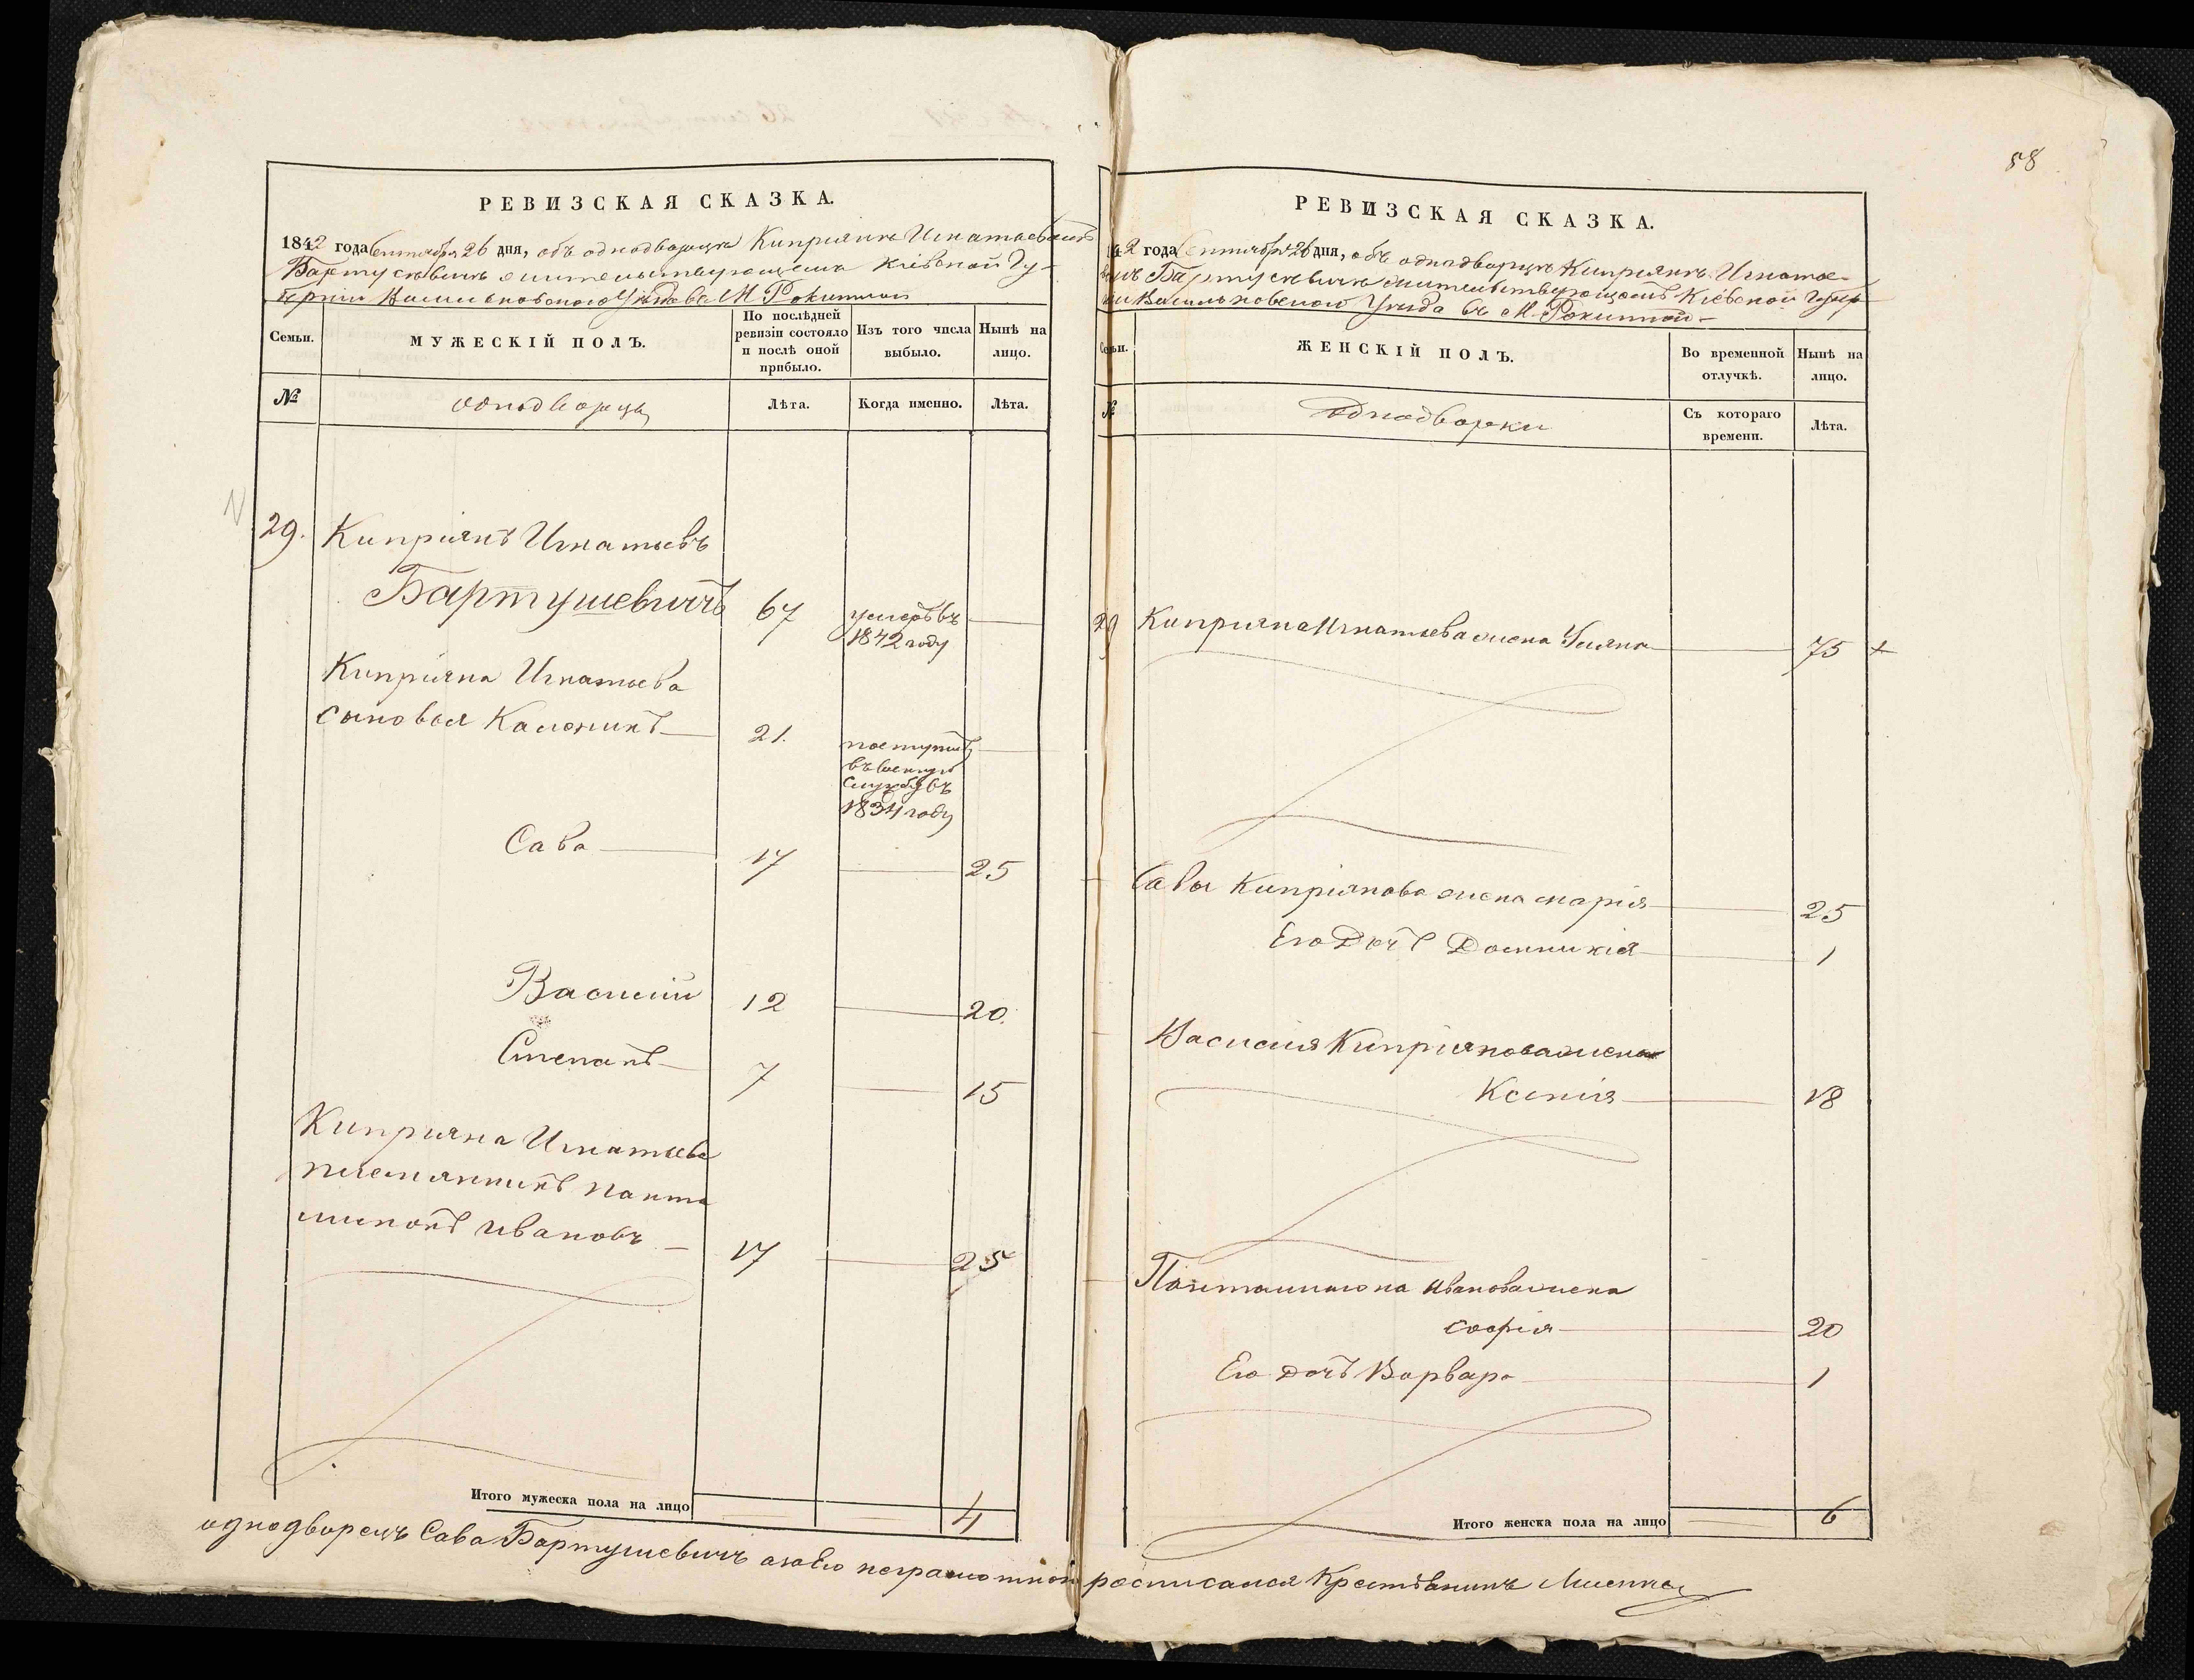 58
РЕВИЗСКАЯ СКАЗКА.
1842 года Сентября 26 дня, объ однодворцѣ Кипріянѣ Игнатьевѣ
Бартушевичѣ жительствующемъ Кіевской Гу-
берніи Васильковскаго Уѣзда въ М Рокитной
Семьи.
МУЖЕСКІЙ ПОЛЪ.
По послѣдней ревизіи состояло и послѣ оной прибыло.
Изъ того числа выбыло.
Нынѣ на лицо.
№
однодворцы
Лѣта.
Когда именно.
Лѣта.
29. Кипріянъ Игнатьевъ
Бартушевичъ 67 умеръ въ
1842 году
Кипріяна Игнатьева
сыновья Каленикъ 21. поступилъ
въ военную
службу въ
1834 году
Сава 17 25
Василий 12 20.
Степанъ 7 15
Киприяна Игнатьева
племянникъ Панта
лимонъ Ивановъ 17 25
Итого мужеска пола на лицо 4
РЕВИЗСКАЯ СКАЗКА.
42 года Сентября 26 дня, объ однодворцѣ Кипріянѣ Игнатье-
вичѣ Бартушевичѣ жительствующемъ Кіевской Губер
ніи Васильковскаго Уѣзда въ М. Рокитной
Семьи.
ЖЕНСКІЙ ПОЛЪ.
Во временной отлучкѣ.
Нынѣ на лицо.
№
Однодворки
Съ котораго времени.
Лѣта.
29 Киприяна Игнатьева жена Уляна 75 +
Савы Кипріянова жена Марія 25
Его Дочь Домникія 1
Василія Кипріянова жена
Ксенія 18
Пантелимона Иванова жена
Софія 20
Его дочь Варвара 1
Итого женска пола на лицо 6
однодворецъ Сава Бартушевичъ а за его неграмотной росписался Крестьянинъ